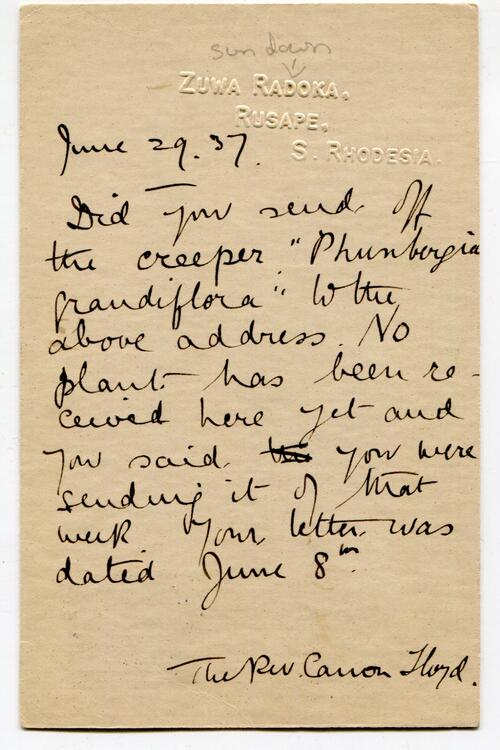 sun down
ZUWA RADOKA.
RUSAPE,
S. RHODESIA.
June 29. 37.
Did you send off
the creeper "Thunbergia
grandiflora" to the
above address. No
plant has been re-
ceived here yet and
you said you were
sending it off that
week Your letter was
dated June 8th.
The Rev. Canon Lloyd.